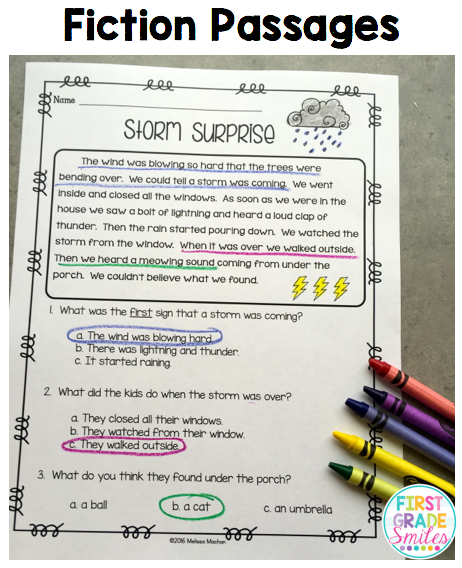 Fiction Passages
Name
STORM SURPRISE
The wind was blowing so hard that the trees were
bending over. We could tell a storm was coming. We went
inside and closed all the windows. As soon as we were in the
house we saw a bolt of lightning and heard a loud clap of
thunder. Then the rain started pouring down. We watched the
storm from the window. When it was over we walked outside.
Then we heard a meowing sound coming from under the
porch. We couldn't believe what we found.
1. What was the first sign that a storm was coming?
a. The wind was blowing hard.
b. There was lightning and thunder.
c. It started raining.
2. What did the kids do when the storm was over?
a. They closed all their windows.
b. They watched from their window.
c. They walked outside.
3. What do you think they found under the porch?
a. a ball b. a cat c. an umbrella
©2016 Melissa Machan
FIRST
GRADE
Smiles